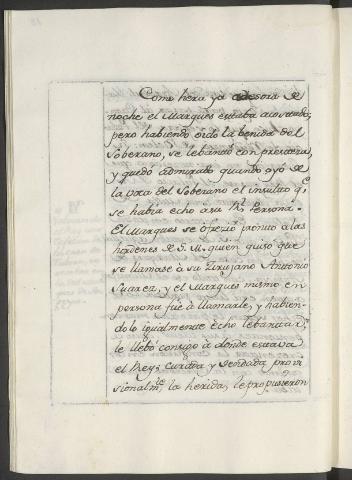 Como hera ya adesora de
noche el Marques estaba acostado;
pero habiendo oido la benida del
Soberano, se lebantó con presteza,
y quedó admirado quando oyó de
la voca del Soberano el insulto q.e
se habia echo a su R.l Persona.
El Marques se ofrezió pronto a las
hordenes de S. M. quien quiso que
se llamase á su Zirujano Antonio
Suarez, y el Marques mismo en
persona fue á llamarle, y habien-
dolo igualmente echo lebantar,
le llebó consigo á donde estava
el Rey; curada y vendada provi
sionalm.te la herida, le propusieron